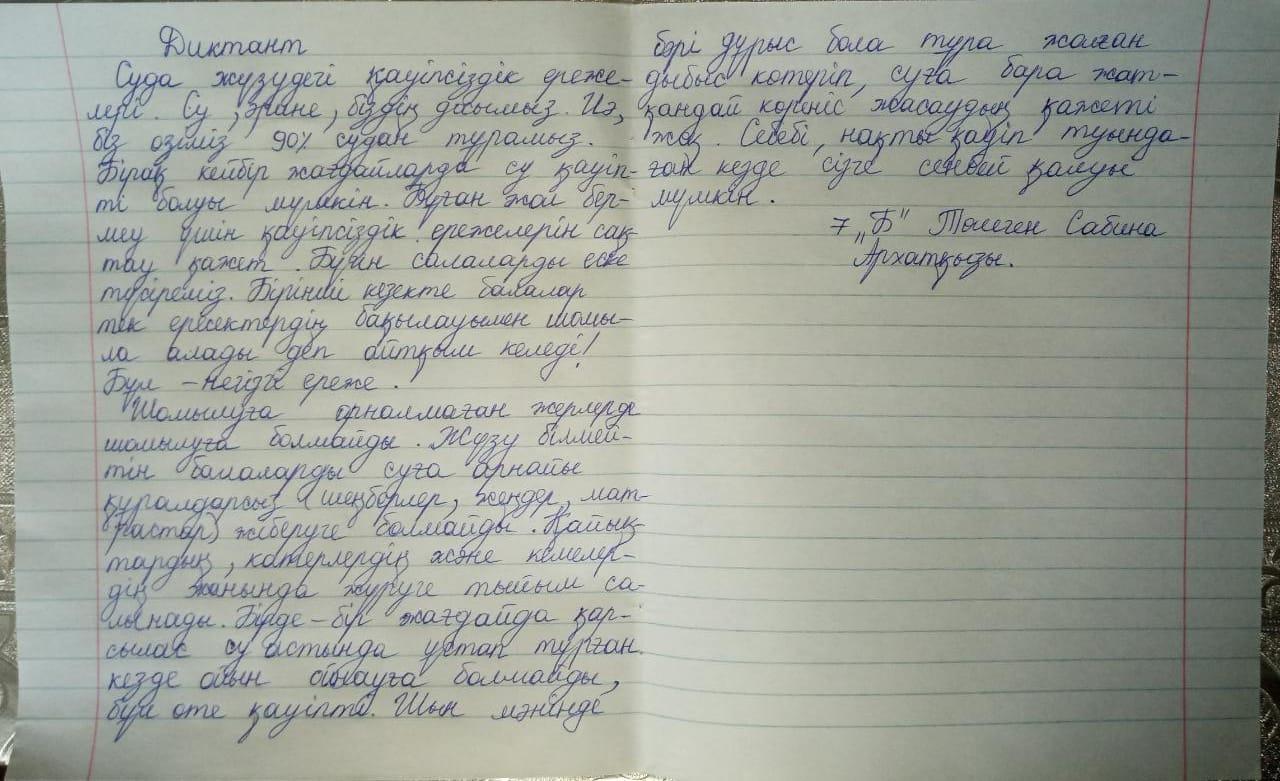 Диктант
Суда жүзудегі қауіпсіздік ереже-
лері. Су, әрине, біздің досымыз. Иә,
біз өзіміз 90% судан тұрамыз.
Бірақ кейбір жағдайларда су қауіп-
ті болуы мүмкін. Бұған жол бер-
меу үшін қауіпсіздік ережелерін сақ-
тау қажет. Бүгін балаларды еске
түсіреміз. Бірінші кезекте балалар
тек ересектердің бақылауымен шомы-
ла алады деп айтқым келеді!
Бұл - негізгі ереже.
Шомылуға арналмаған жерлерде
шомылуға болмайды. Жүзу білмей-
тін балаларды суға арнайы
құралдарсыз (шеңберлер, жеңдер, мат-
растар) жіберуге болмайды. Қайық-
тардың, катерлердің және кемелер-
дің жанында жүруге тыйым са-
лынады. Бірде-бір жағдайда қар-
сылас су астында ұстап тұрған
кезде ойын ойнауға болмайды,
бұл өте қауіпті. Шын мәнінде
бәрі дұрыс бола тұра жалған
дыбыс көтеріп, суға бара жат-
қандай көрініс жасаудың қажеті
жоқ. Себебі, нақты қауіп туында-
ған кезде сізге сенбей қалуы
мүмкін.
7 „Б" Төлеген Сабина
Архатқызы.